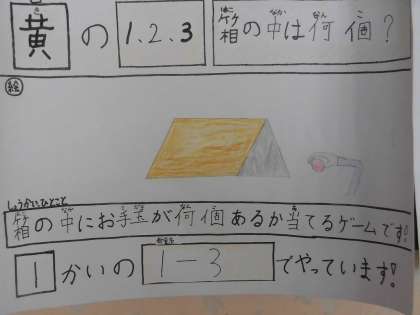 黄の 1.2.3 箱の中は何個?
絵
しょうかいひとこと
箱の中にお手玉が何個あるか当てるゲームです!
1かいの 1-3 でやっています!